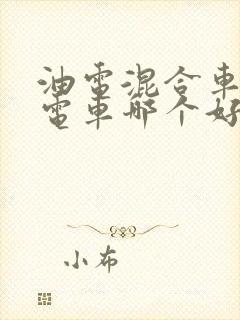 油電混合車
電車哪个好
小布